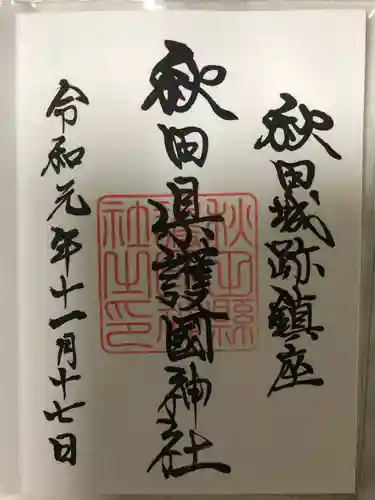 秋田城跡鎮座
秋田県護國神社
令和元年十一月十七日
秋田縣
護國神
社之印